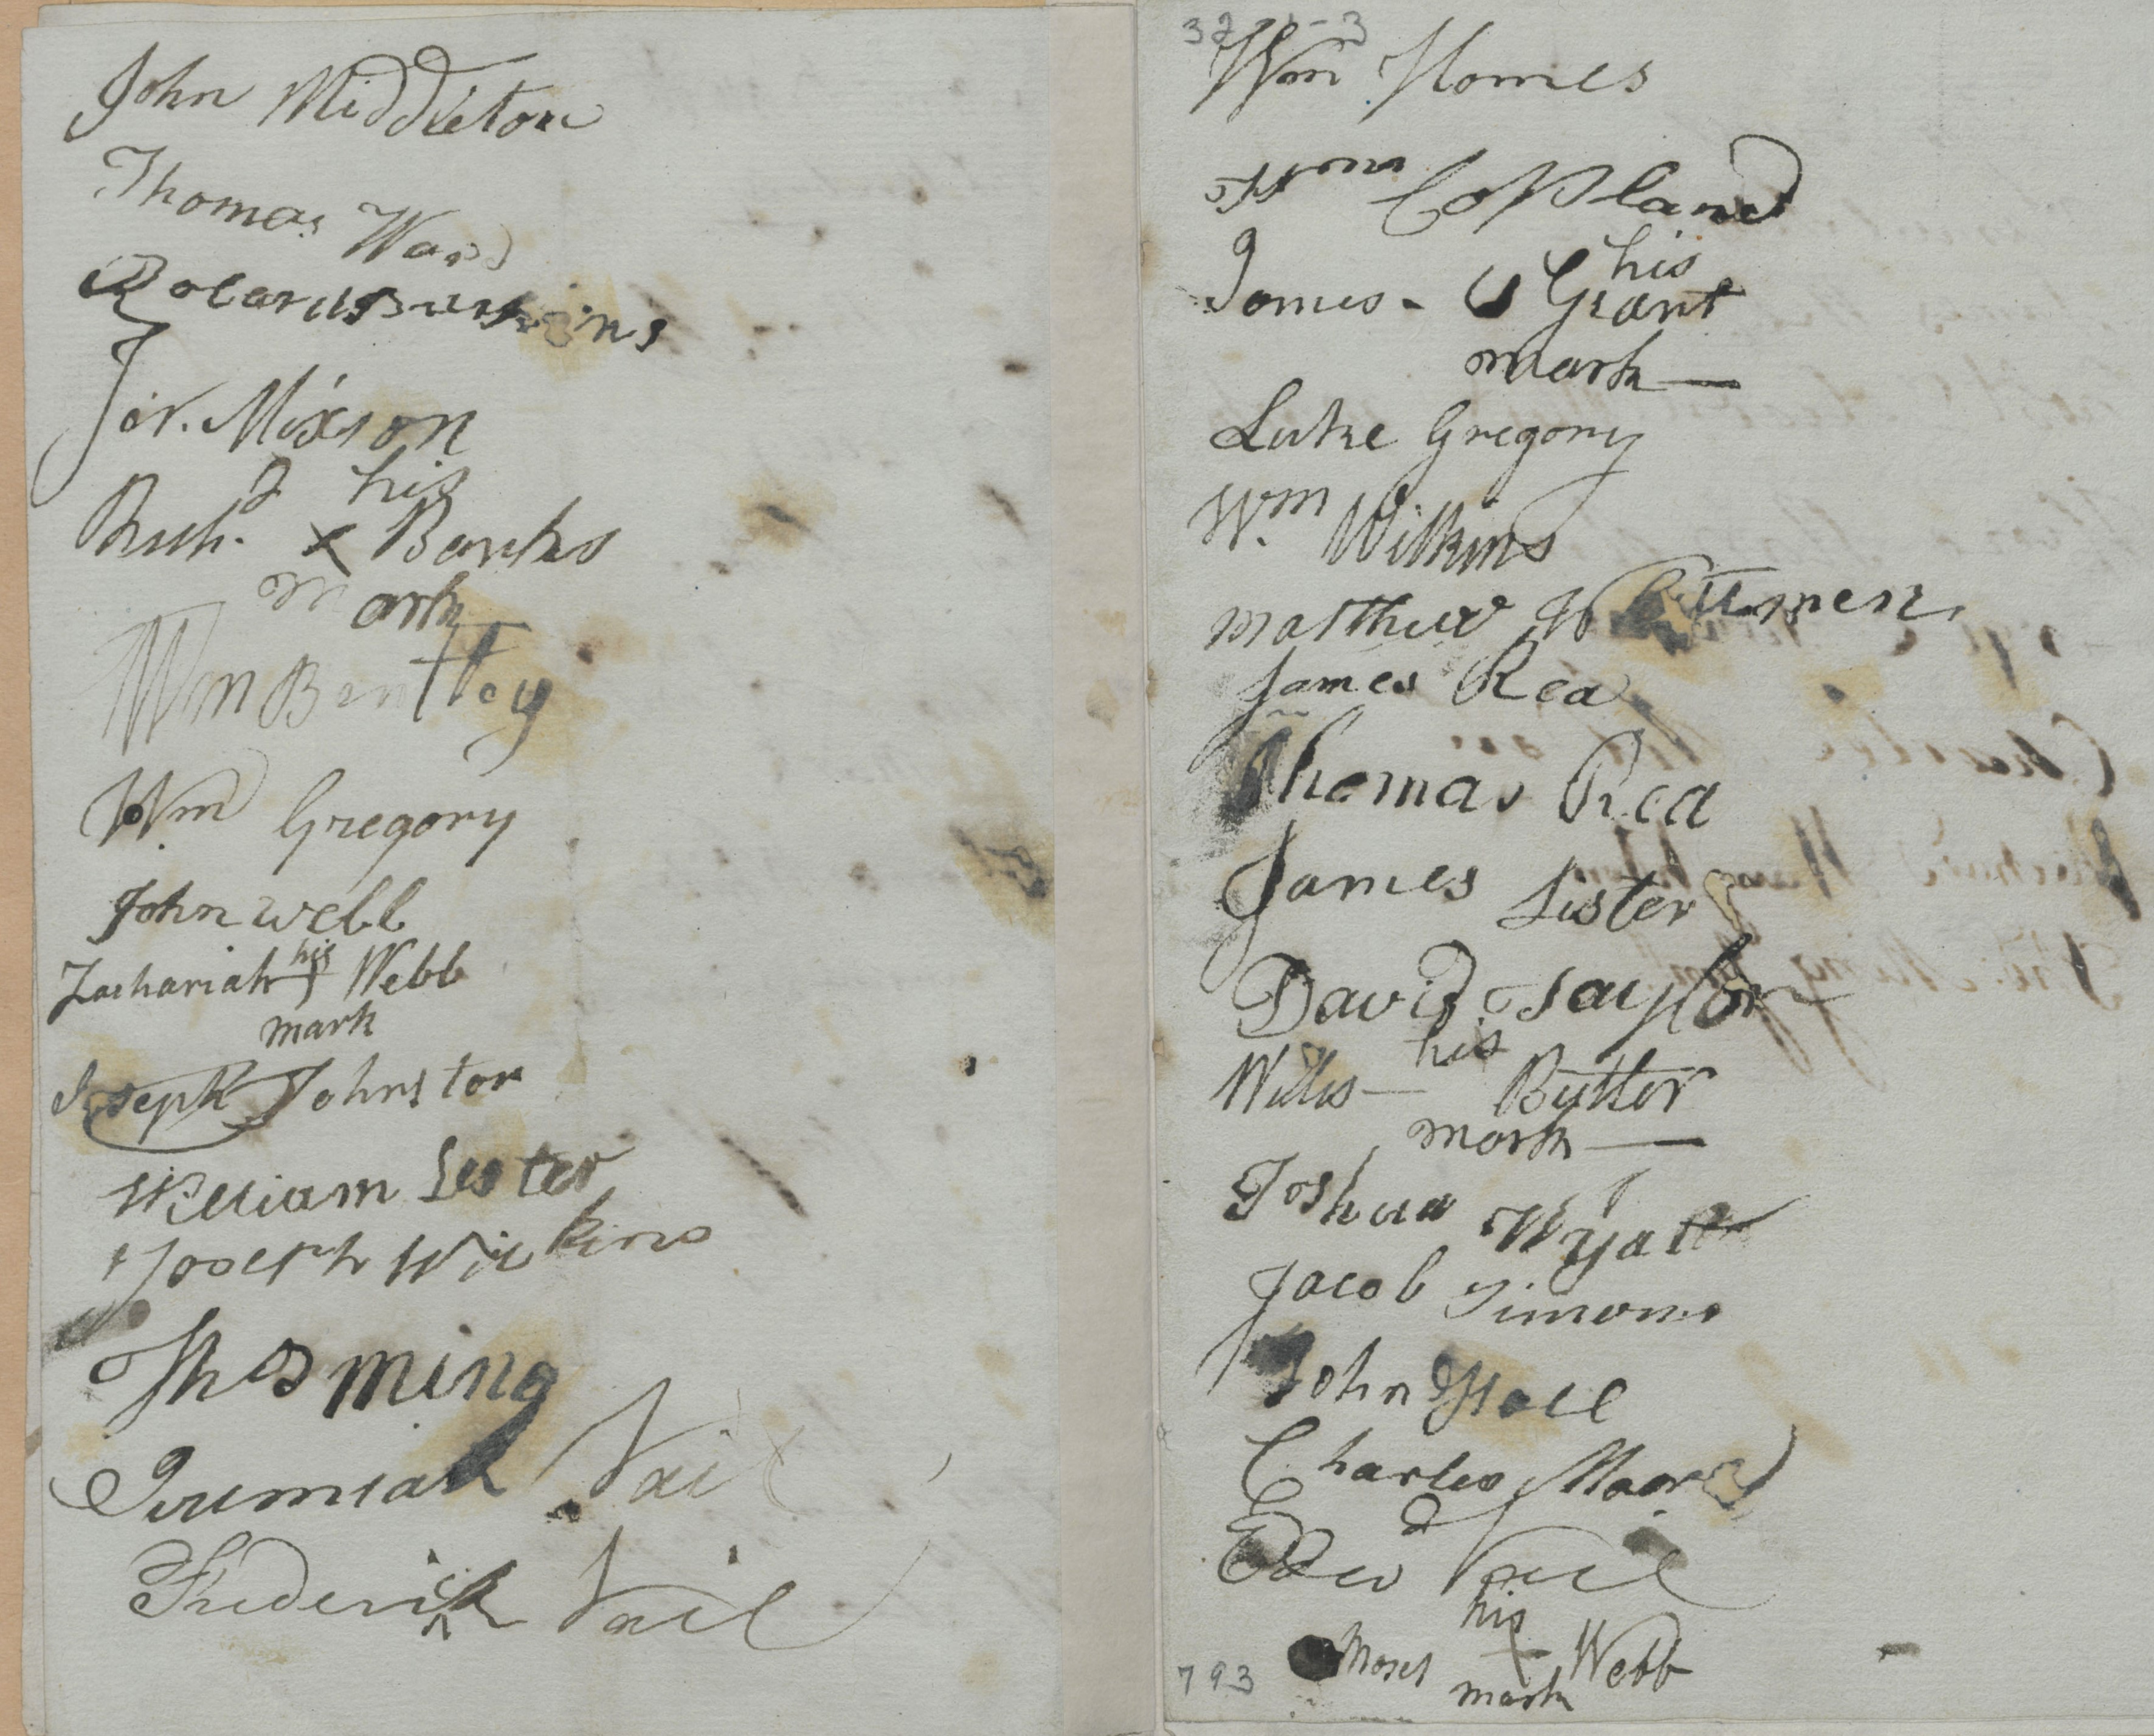 John Middleton
Thomas Ward
Jer. Mixson
his
Richd. x Banks
mark
Wm Bentley
Wm Gregory
John Webb
his
Zachariah Webb
mark
Joseph Johnston
William Lister
Joseph Wilkins
Thos ming
Jeremiah Vail
Frederick Vail
32 -3
Wm Homes
Wm Copland
his
James - Grant
mark —
Luke Gregory
Wm Wilkins
Matthew
James Rea
Thomas Rea
James Lister
David Taylor
his
Willis — Butler
mark —
Joshua Wyatt
Jacob Simons
John Hall
Charles Moore
Edwd Vail
his
Moses + Webb
mark
793